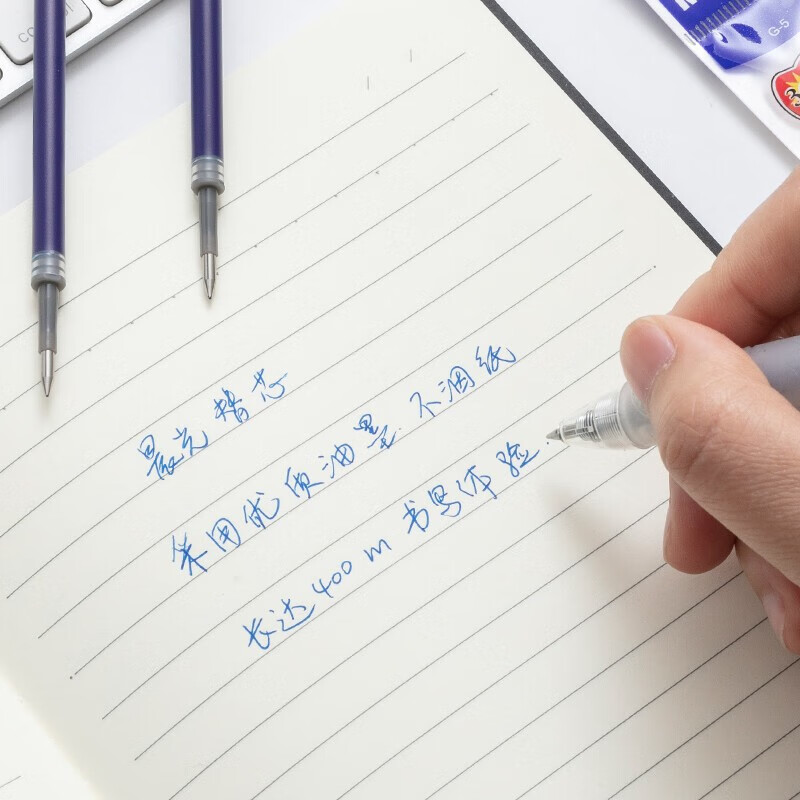 control
G-5
晨光替芯
采用优质油墨.不洇纸
长达400m书写体验.